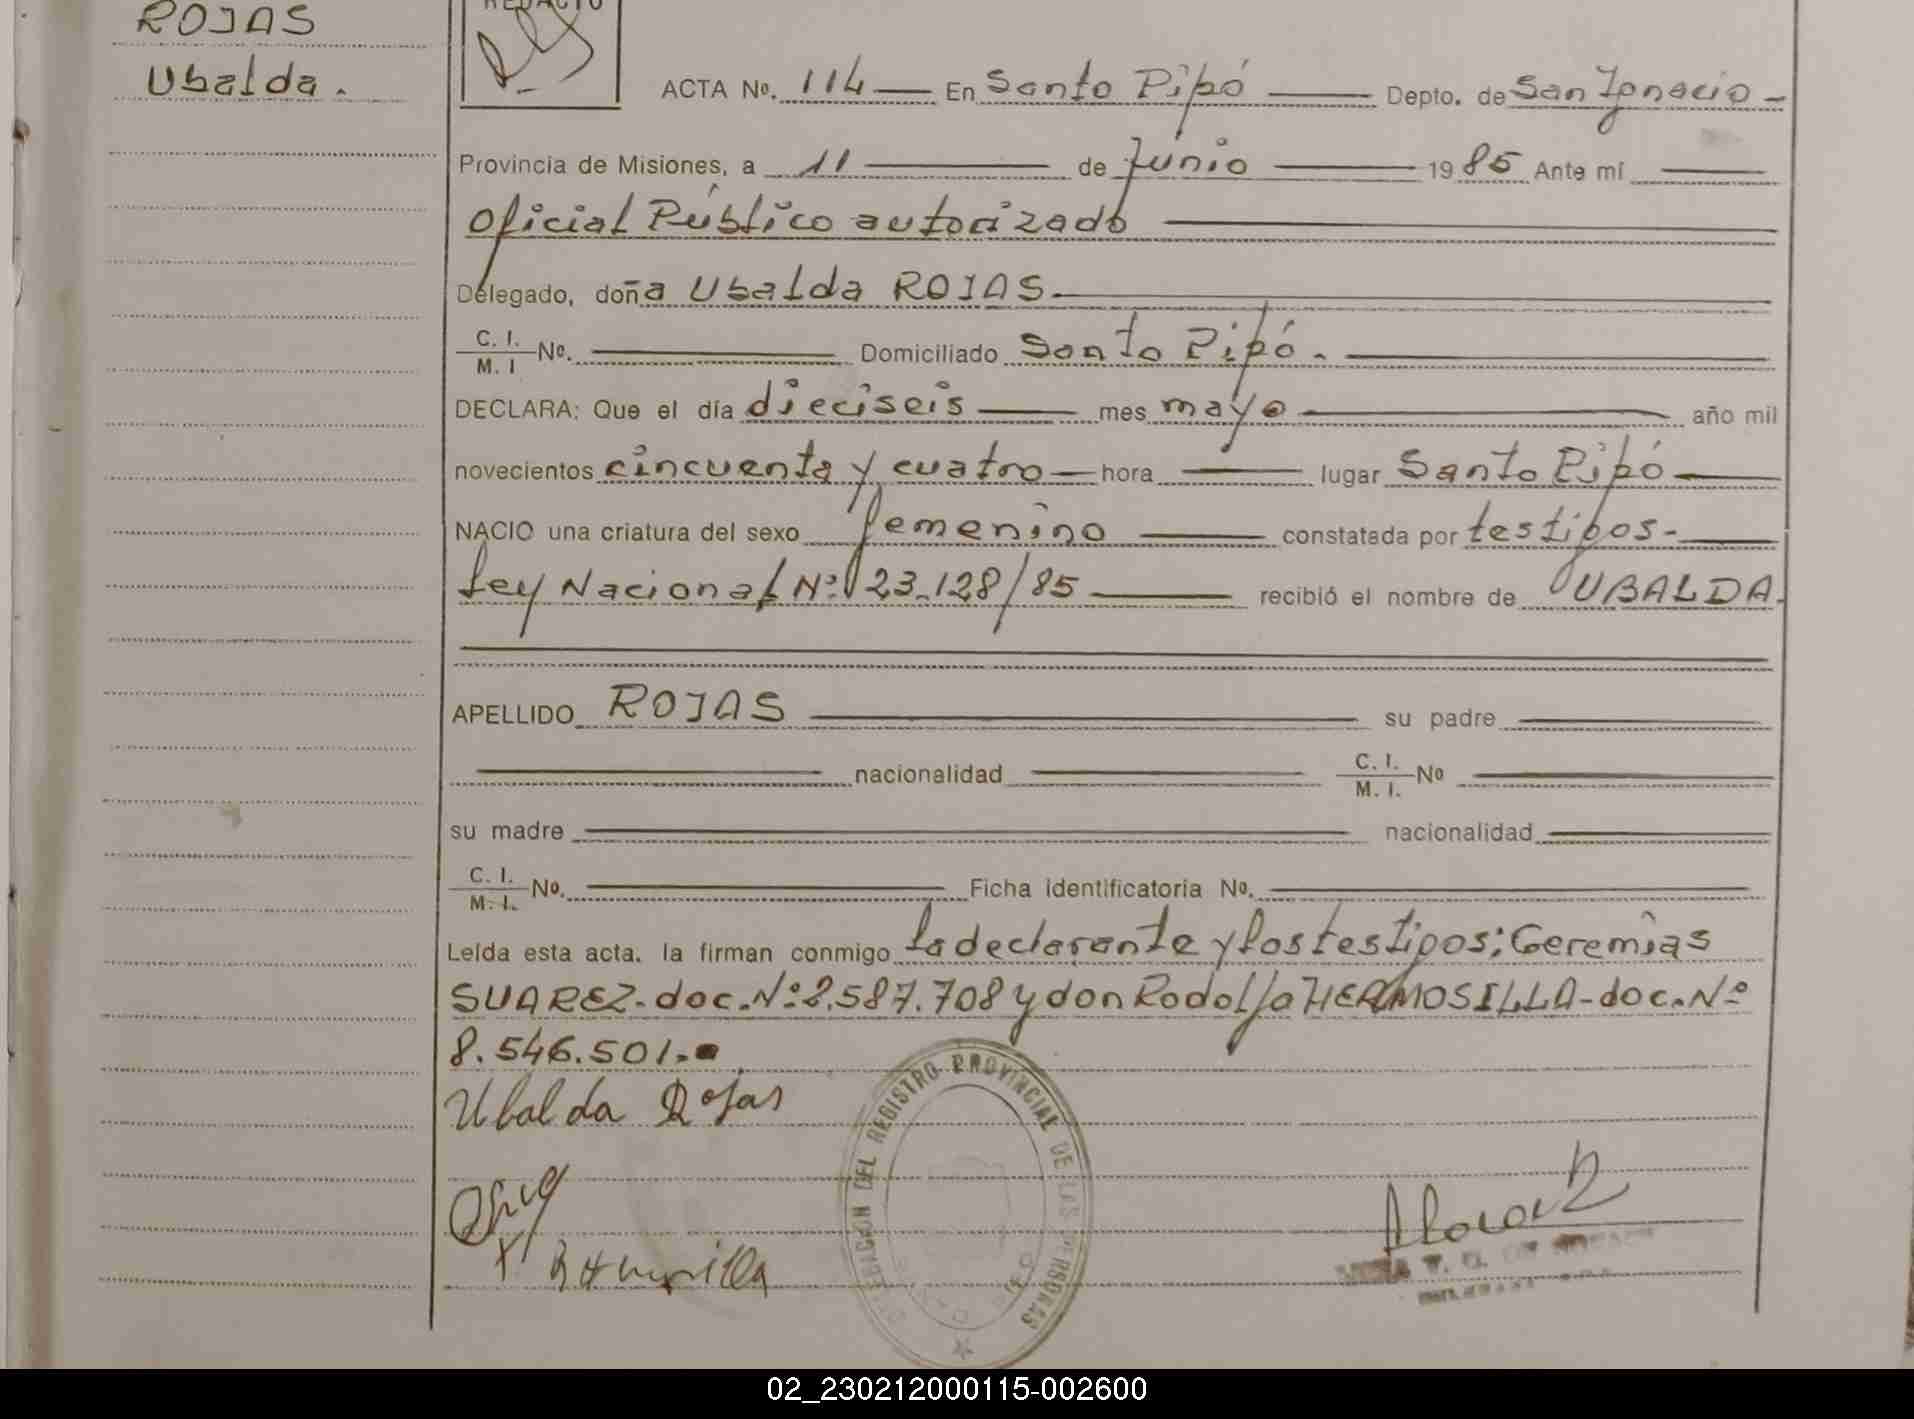 ROJAS
Ubalda.
REDACTO
ACTA No. 114 En Santo Pipó Depto. de San Ignacio
Provincia de Misiones, a 11 de Junio 1985 Ante mí
Oficial Público autorizado
Delegado, doña Ubalda ROJAS.
C. I. M. I No. Domiciliado Santo Pipó.
DECLARA: Que el día dieciseis mes mayo año mil
novecientos cincuenta y cuatro hora lugar Santo Pipó
NACIO una criatura del sexo femenino constatada por testigos-
Ley Nacional Nº 23.128/85 recibió el nombre de UBALDA.
APELLIDO ROJAS su padre
nacionalidad C. I. M. I. No
su madre nacionalidad
C. I. M. I. No. Ficha identificatoria No.
Leída esta acta. la firman conmigo la declarante y los testigos: Geremías
SUAREZ-doc.Nº 8.587.708 y don Rodolfo HERMOSILLA-doc.Nº
8.546.501.-
Ubalda Rojas
DELEGACION DEL REGISTRO PROVINCIAL DE LAS PERSONAS
02_230212000115-002600